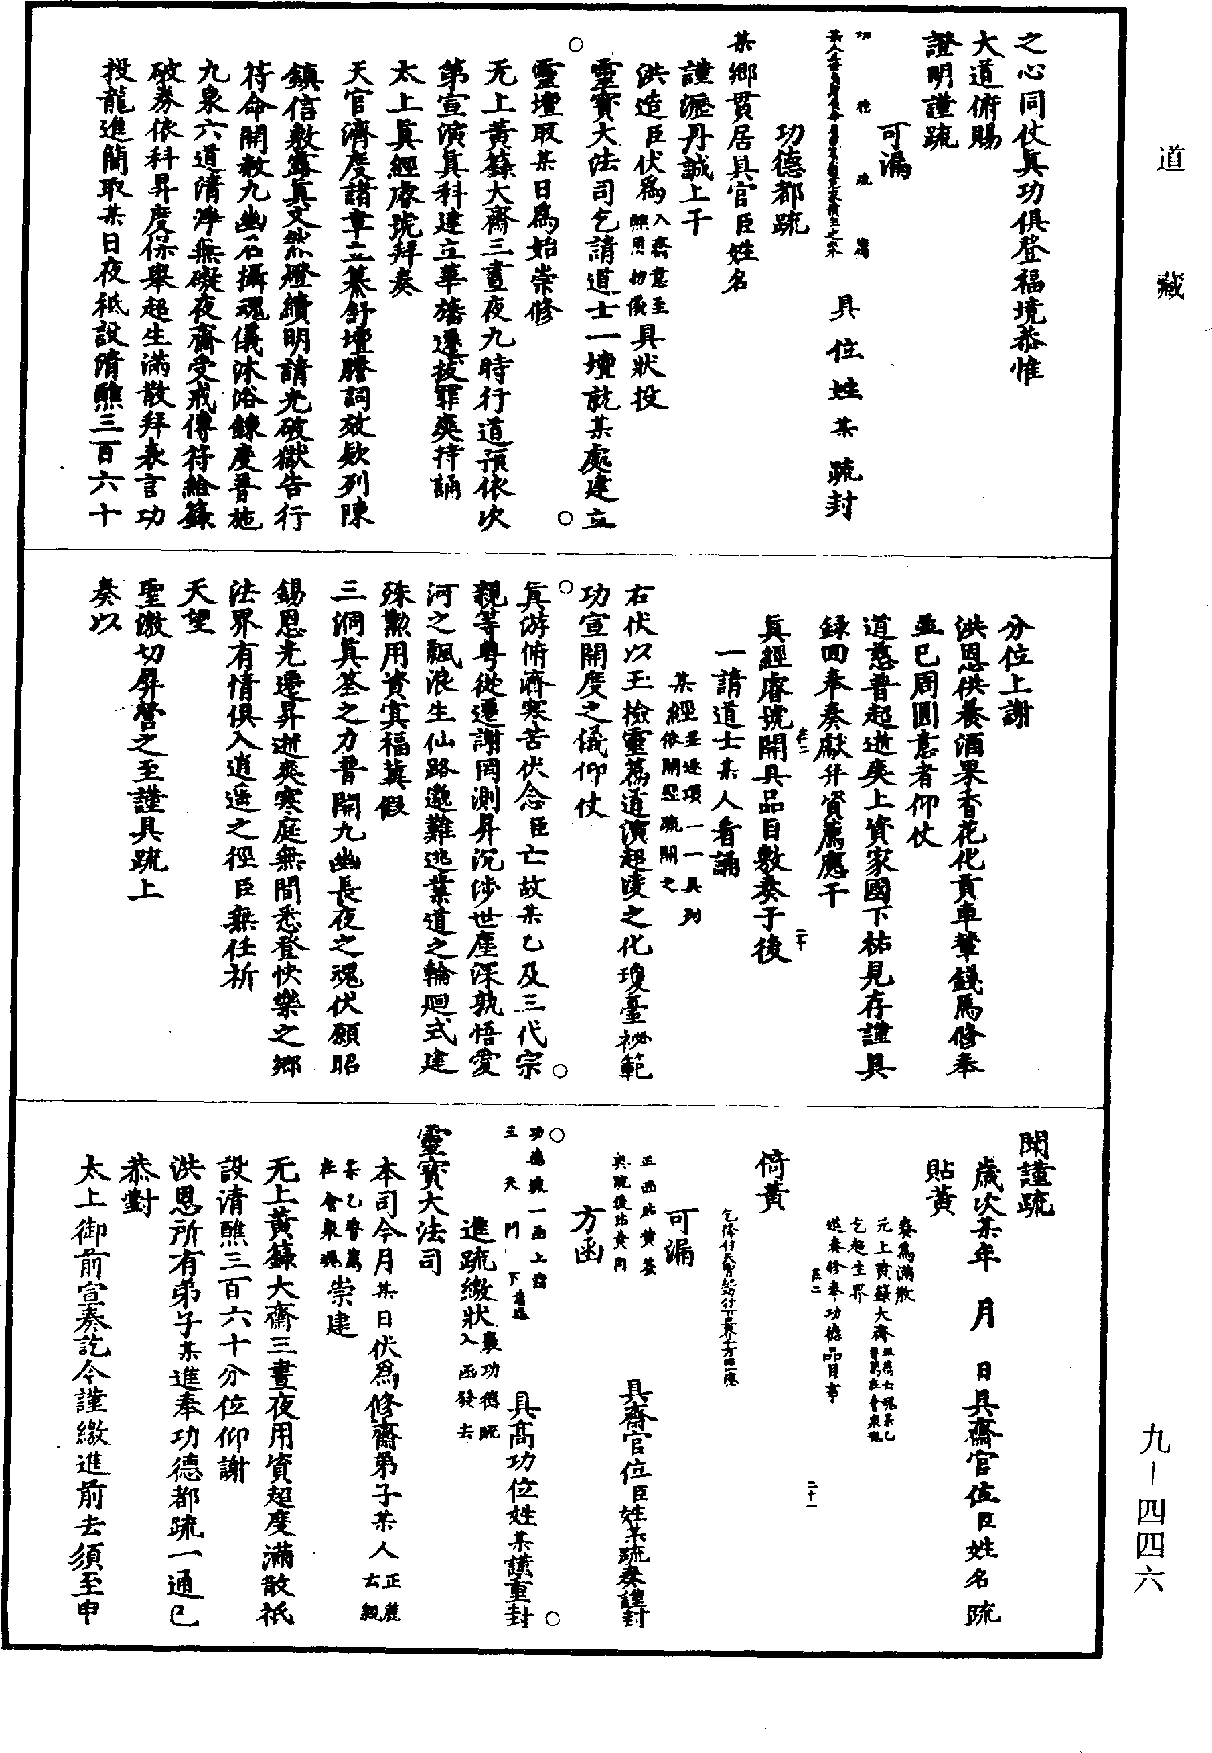 道藏
之心同仗真功俱登福境恭惟
大道俯賜
證明謹疏
可漏
功德疏 具位姓某疏封
功德都疏
某鄉貫居具官臣姓名
謹瀝丹誠上干
洪造臣伏為入齋意至醮用切儀具狀投
靈寶大法司乞請道士一壇就某處建立
靈壇取某日為始崇修
无上黃籙大齋三晝夜九時行道預依次
第宣演真科建立華旛遷拔罪爽持誦
太上真經睿號拜奏
天官濟度諸章立纂舒壇謄詞放欵列陳
鎮信敷露真文然燈續明請光破獄告行
符命開赦九幽召攝魂儀沐浴鍊度普施
九泉六道清淨無礙夜齋受戒傳符給籙
破券依科昇度保舉超生滿散拜表言功
投龍進簡取某日夜祇設清醮三百六十
分位上謝
洪恩供養酒果香花化賁車輦錢馬修奉
並已周圓意者仰仗
道慈普超逝爽上資家國下祐見存謹具
錄回奉奏獻并資薦應干
真經睿號開具品目數奏于後
一請道士某人看誦
某經並逐項一一具列依開經疏開之
右伏以玉檢靈篇道演超凌之化瓊臺祕範
功宣開度之儀仰仗
真游俯濟寒苦伏念臣亡故某乙及三代宗
親等粵從遷謝罔測昇沉涉世塵深孰悟愛
河之飄浪生仙路邈難逃業道之輪迴式建
殊勳用資冥福冀假
三洞真荃之力普開九幽長夜之魂伏願昭
錫恩光遷昇逝爽寒庭無間悉登快樂之鄉
法界有情俱入逍遙之徑臣無任祈
天望
聖激切屏營之至謹具疏上
奏以
聞謹疏
歲次某年 月 日具齋官位臣姓名疏
貼黃
奏為滿散
元上黃籙大齋
乞超生界
進奏修奉功德品目事
倚黃
可漏
正面貼黃簽
具齋官位臣姓某疏奏謹封
方函
功德疏一函上詣
三天門下
具高功位姓某謹重封
進疏繳狀裏功德疏入函發去
靈寶大法司
本司今月某日伏為修齋弟子某人
某乙普薦在會眾魂崇建
无上黃籙大齋三晝夜用資超度滿散祇
設清醮三百六十分位仰謝
洪恩所有弟子某進奉功德都疏一通已
恭對
太上御前宣奏訖今謹繳進前去須至申
九－四四六